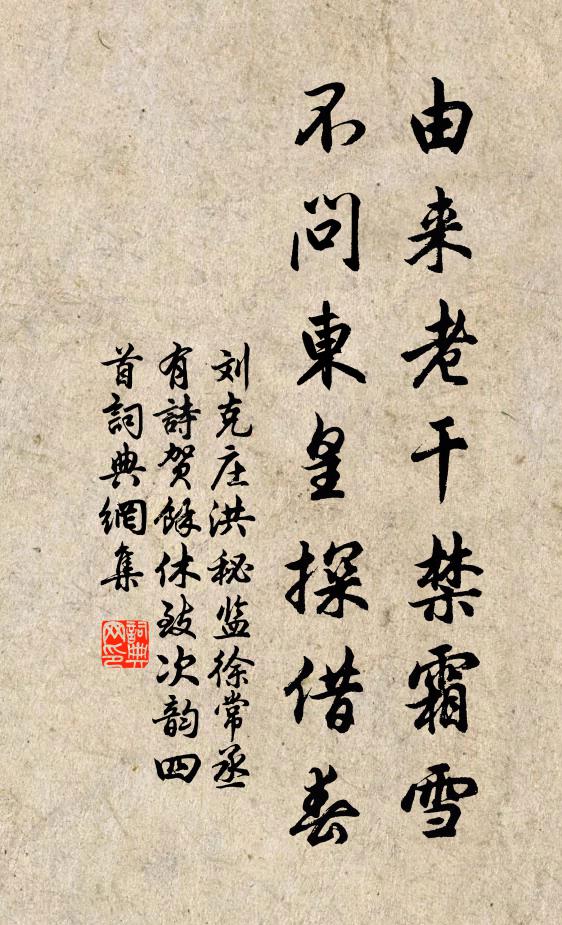 由来老干禁霜雪
不問東皇探借春
刘克庄洪秘监徐常丞
有詩贺餘休致次韵四
首詞典網集
詞典网印